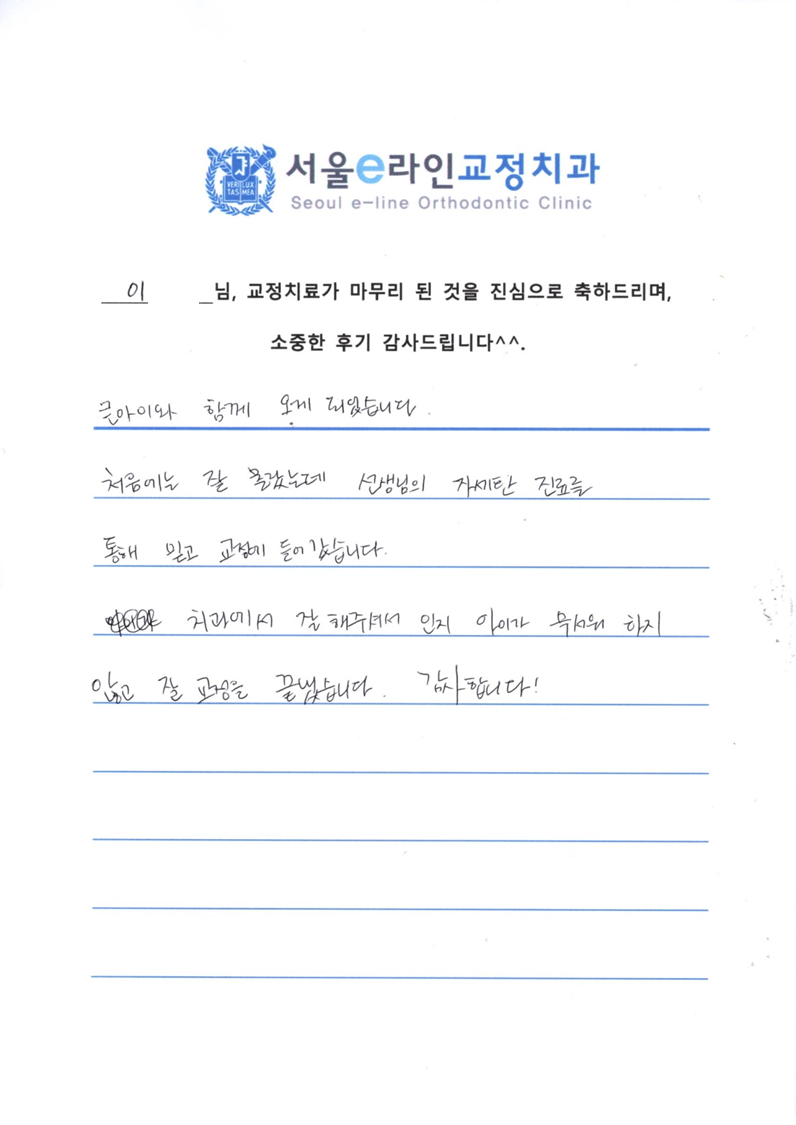 VERI LUX
TAS MEA
서울e라인교정치과
Seoul e-line Orthodontic Clinic
이 님, 교정치료가 마무리 된 것을 진심으로 축하드리며,
소중한 후기 감사드립니다^^.
큰아이와 함께 오게 되었습니다.
처음에는 잘 몰랐는데 선생님의 자세한 진료를
통해 믿고 교정에 들어갔습니다.
치과에서 잘 해주셔서 인지 아이가 무서워 하지
않고 잘 교정을 끝냈습니다. 감사합니다!